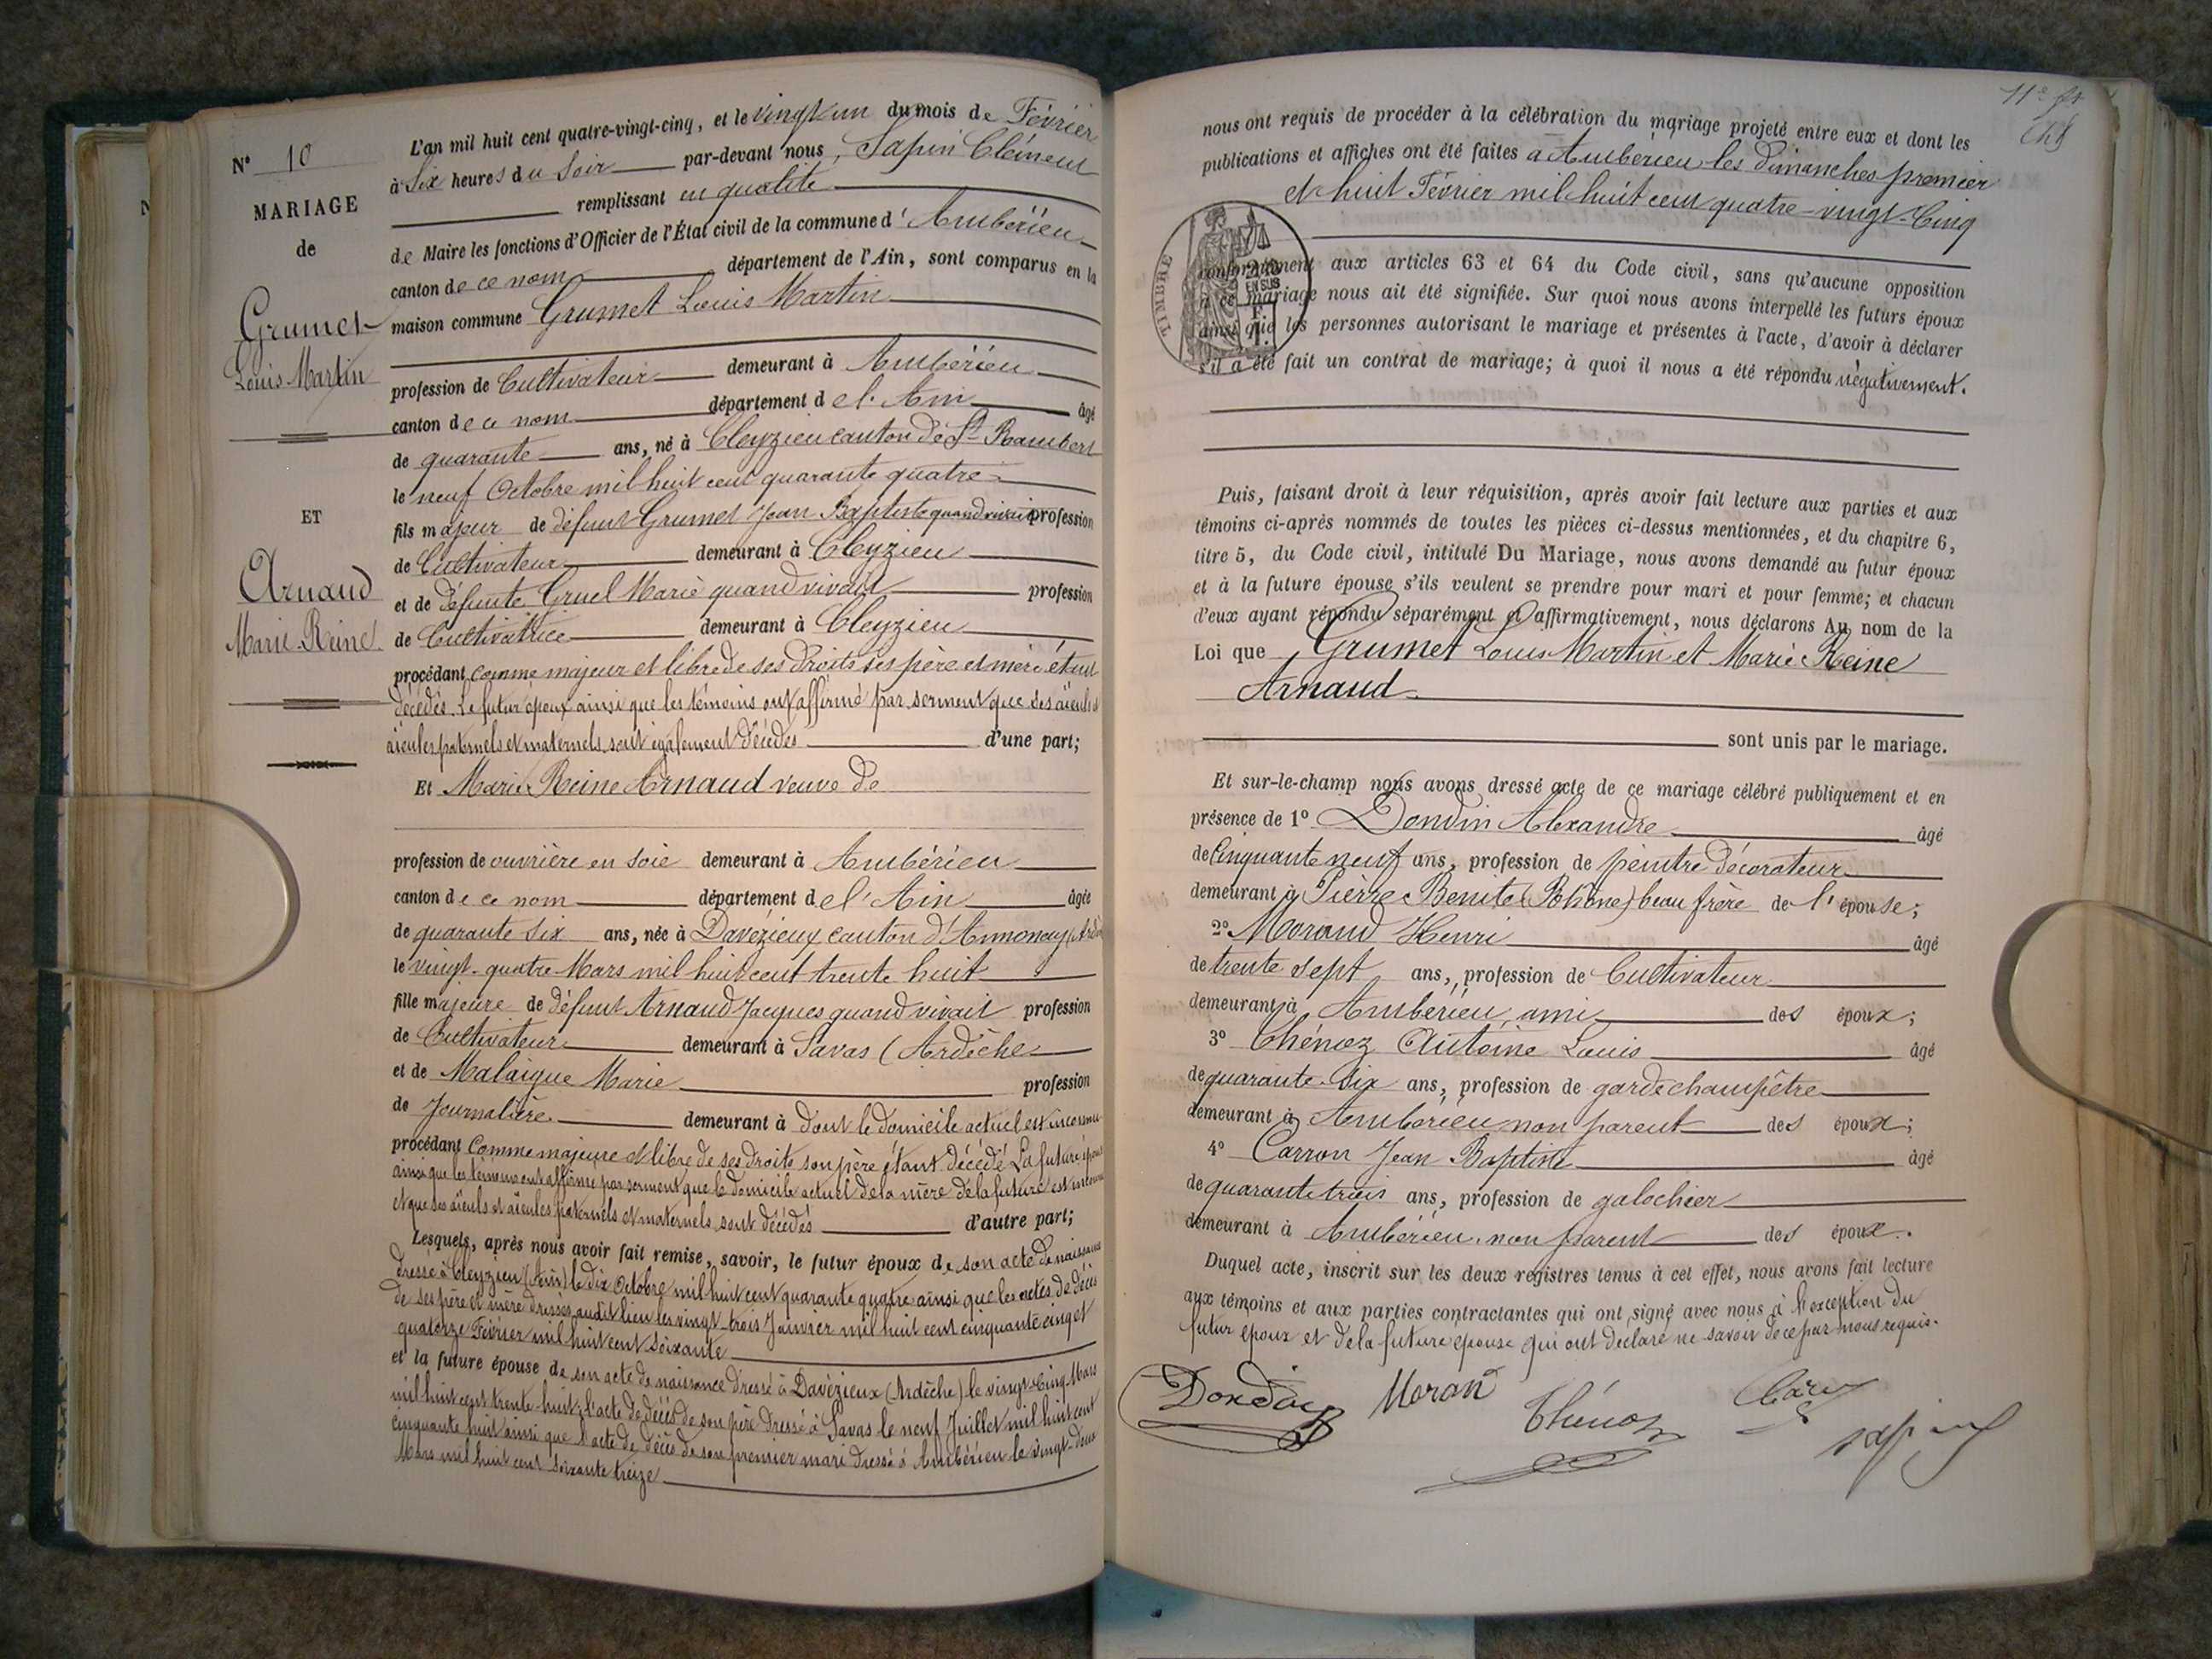 N° 10
MARIAGE
de
Grumet
Louis Martin
ET
Arnaud
Marie-Reine
L'an mil huit cent quatre-vingt-cinq, et le vingt un du mois de Février
à Six heures du Soir par-devant nous, Sapin Clément
remplissant en qualité
de Maire les fonctions d'Officier de l'État civil de la commune d'Ambérieu
canton de ce nom département de l'Ain, sont comparus en la
maison commune Grumet Louis Martin
profession de Cultivateur demeurant à Ambérieu
canton de ce nom département d el'Ain âgé
de quarante ans, né à Cleyzieu canton de St Rambert
le neuf Octobre mil huit cent quarante quatre
fils majeur de défunt Grumet Jean Baptiste quand vivait profession
de Cultivateur demeurant à Cleyzieu
et de défunte Gruel Marie quand vivait profession
de Cultivatrice demeurant à Cleyzieu
procédant comme majeur et libre de ses droits ses père et mère étant
décédés. Le futur époux ainsi que les témoins ont affirmé par serment que ses aïeuls et
aïeules paternels et maternels sont également décédés d'une part;
Et Marie Reine Arnaud veuve de
profession de ouvrière en soie demeurant à Ambérieu
canton de ce nom département d el'Ain âgée
de quarante six ans, née à Davézieux canton d'Annonay (Ardè
le vingt-quatre Mars mil huit cent trente huit
fille majeure de défunt Arnaud Jacques quand vivait profession
de Cultivateur demeurant à Savas (Ardèche
et de Malaigue Marie profession
de Journalière demeurant à dont le domicile actuel est inconnu
procédant comme majeure et libre de ses droits son père étant décédé La future épouse
ainsi que les témoins ont affirmé par serment que le domicile actuel de la mère de la future est inconnu
et que ses aïeuls et aïeules paternels et maternels sont décédés d'autre part;
Lesquels, après nous avoir fait remise, savoir, le futur époux de son acte de naissance
dressé à Cleyzieu (Ain) le dix Octobre mil huit cent quarante quatre ainsi que les actes de décès
de ses père et mère dressés audit lieu les vingt-trois Janvier mil huit cent cinquante cinq et
quatorze Février mil huit cent soixante
et la future épouse de son acte de naissance dressé à Davézieux (Ardèche) le vingt-Cinq Mars
mil huit cent trente-huit, l'acte de décès de son père dressé à Savas le neuf Juillet mil huit cent
cinquante huit ainsi que l'acte de décès de son premier mari dressé à Ambérieu le vingt-deux
Mars mil huit cent soixante treize
nous ont requis de procéder à la célébration du mariage projeté entre eux et dont les
publications et affiches ont été faites à Ambérieu les dimanches premier
et huit Février mil huit cent quatre-vingt-Cinq
TIMBRE
conformément aux articles 63 et 64 du Code civil, sans qu'aucune opposition
à ce mariage nous ait été signifiée. Sur quoi nous avons interpellé les futurs époux
ainsi que les personnes autorisant le mariage et présentes à l'acte, d'avoir à déclarer
s'il a été fait un contrat de mariage; à quoi il nous a été répondu négativement.
Puis, faisant droit à leur réquisition, après avoir fait lecture aux parties et aux
témoins ci-après nommés de toutes les pièces ci-dessus mentionnées, et du chapitre 6,
titre 5, du Code civil, intitulé Du Mariage, nous avons demandé au futur époux
et à la future épouse s'ils veulent se prendre pour mari et pour femme; et chacun
d'eux ayant répondu séparément et affirmativement, nous déclarons Au nom de la
Loi que Grumet Louis Martin et Marie Reine
Arnaud
sont unis par le mariage.
Et sur-le-champ nous avons dressé acte de ce mariage célébré publiquement et en
présence de 1° Dondin Alexandre âgé
de Cinquante neuf ans, profession de peintre décorateur
demeurant à Pierre Bénite (Rhône) beau frère de l'épouse;
2° Morand Henri âgé
de trente sept ans, profession de Cultivateur
demeurant à Ambérieu, ami des époux;
3° Chénoz Antoine Louis âgé
de quarante-six ans, profession de garde champêtre
demeurant à Ambérieu non parent des époux;
4° Carron Jean Baptiste âgé
de quarante trois ans, profession de galochier
demeurant à Ambérieu, non parent des époux.
Duquel acte, inscrit sur les deux registres tenus à cet effet, nous avons fait lecture
aux témoins et aux parties contractantes qui ont signé avec nous à l'exception du
futur époux et de la future épouse qui ont déclaré ne savoir de ce par nous requis.
Dondin Moran Chénoz Sapin